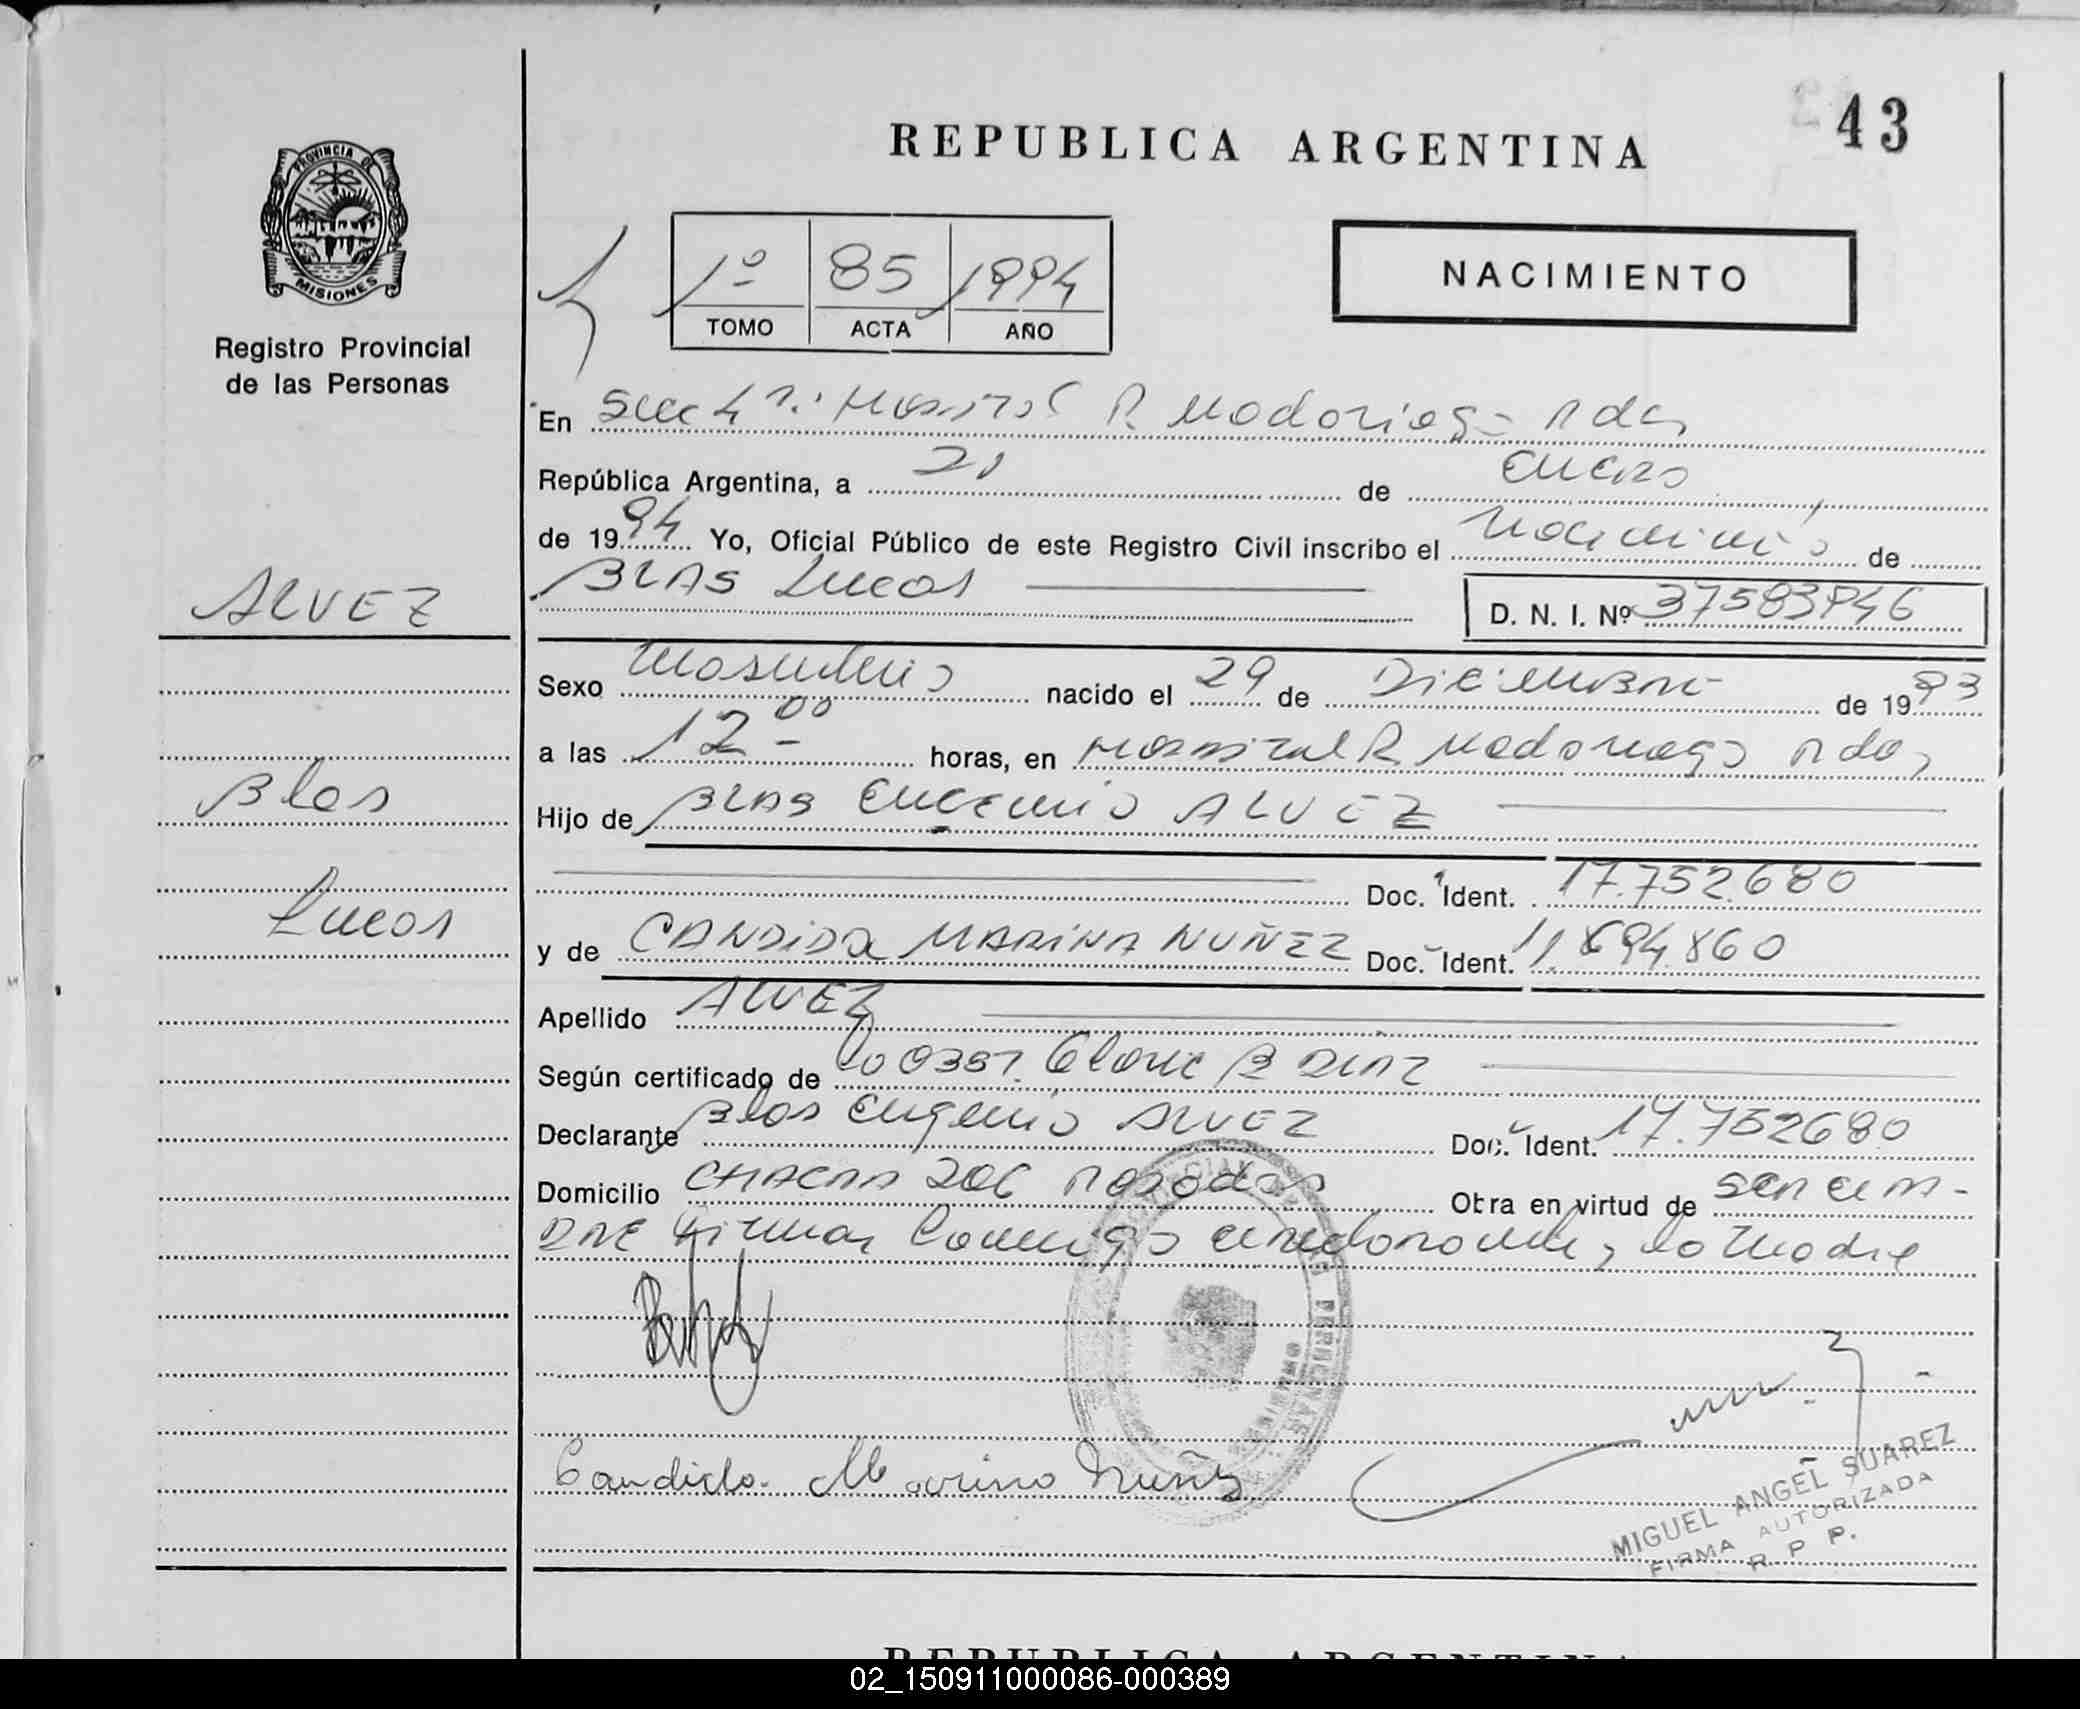 REPUBLICA ARGENTINA
43
PROVINCIA DE
MISIONES
Registro Provincial
de las Personas
1º 85 1994
TOMO ACTA AÑO
NACIMIENTO
En Secc 4ª: Hospital R Madariaga Pdas
República Argentina, a 21 de Enero
de 1994 Yo, Oficial Público de este Registro Civil inscribo el Nacimiento de
BLAS Lucas
D. N. I. Nº 37583946
ALVEZ
Sexo Masculino nacido el 29 de Diciembre de 1993
a las 12 00 horas, en Hospital R Madariaga Pdas
Blas
Hijo de BLAS EUGENIO ALVEZ
Doc. Ident. 17.752.680
Lucas
y de CANDIDA MARINA NUÑEZ Doc. Ident. 11.694.860
Apellido ALVEZ
Según certificado de
Declarante Blas Eugenio ALVEZ Doc. Ident. 17.752680
Domicilio CHACRA 206 Posadas Otra en virtud de
Firman Conmigo la Madre
Candida Marina Nuñez
MIGUEL ANGEL SUAREZ
FIRMA AUTORIZADA
R. P. P.
REPUBLICA ARGENTINA
02_150911000086-000389